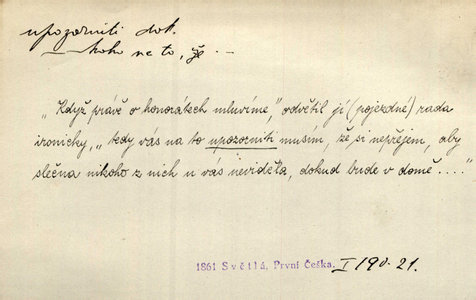 upozorniti dok.
koho na to, že ...
„Když právě o honorářích mluvíme," odvětil jí (pojezdné) rada
ironicky, „tedy vás na to upozorniti musím, že si nepřejem, aby
slečna nikoho z nich u vás neviděla, dokud bude v domě ...."
1861 Světlá, První Češka. I 190. 21.